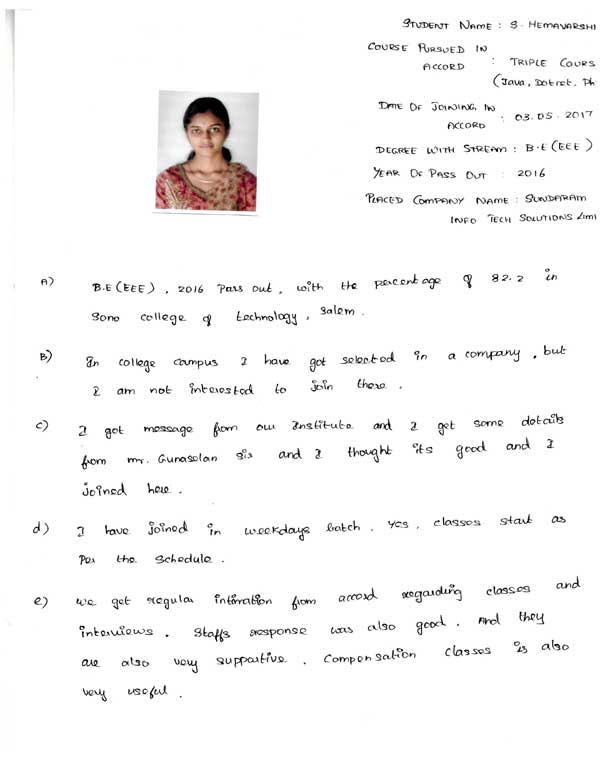 STUDENT NAME : S. HEMAVARSHI
COURSE PURSUED IN
ACCORD : TRIPLE COURS
(Java, Dotnet, Ph
DATE OF JOINING IN
ACCORD : 03.05.2017
DEGREE WITH STREAM : B.E (EEE)
YEAR OF PASS OUT : 2016
PLACED COMPANY NAME : SUNDARAM
INFO TECH SOLUTIONS LIMI
A) B.E (EEE), 2016 Pass out, with the percentage of 82.2 in
Sona college of technology, Salem.
B) In college campus I have got selected in a company, but
I am not interested to join there.
c) I got message from our Institute and I get some details
from mr. Gunaselan sir and I thought its good and I
joined here.
d) I have joined in weekdays batch. Yes, classes start as
Per the schedule.
e) we get regular intimation from accord regarding classes and
interviews. Staffs response was also good. And they
are also very supportive. Compensation classes is also
very useful.